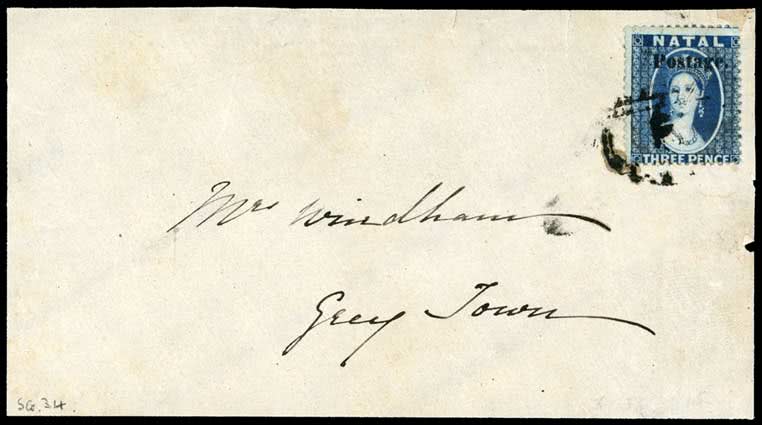 NATAL
Postage.
THREE PENCE
Mrs Windham
Grey Town
SG. 34.